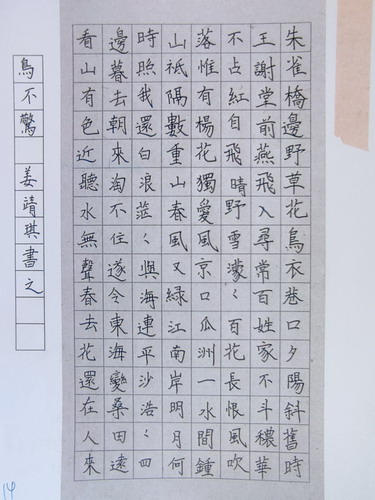 朱雀橋邊野草花烏衣巷口夕陽斜舊時
王謝堂前燕飛入尋常百姓家不斗穠華
不占紅自飛晴野雪濛〻百花長恨風吹
落惟有楊花獨愛風京口瓜洲一水間鍾
山祗隔數重山春風又綠江南岸明月何
時照我還白浪茫〻與海連平沙浩〻四
邊暮去朝來淘不住遂令東海變桑田遠
看山有色近聽水無聲春去花還在人來
鳥不驚 姜靖琪書之
14